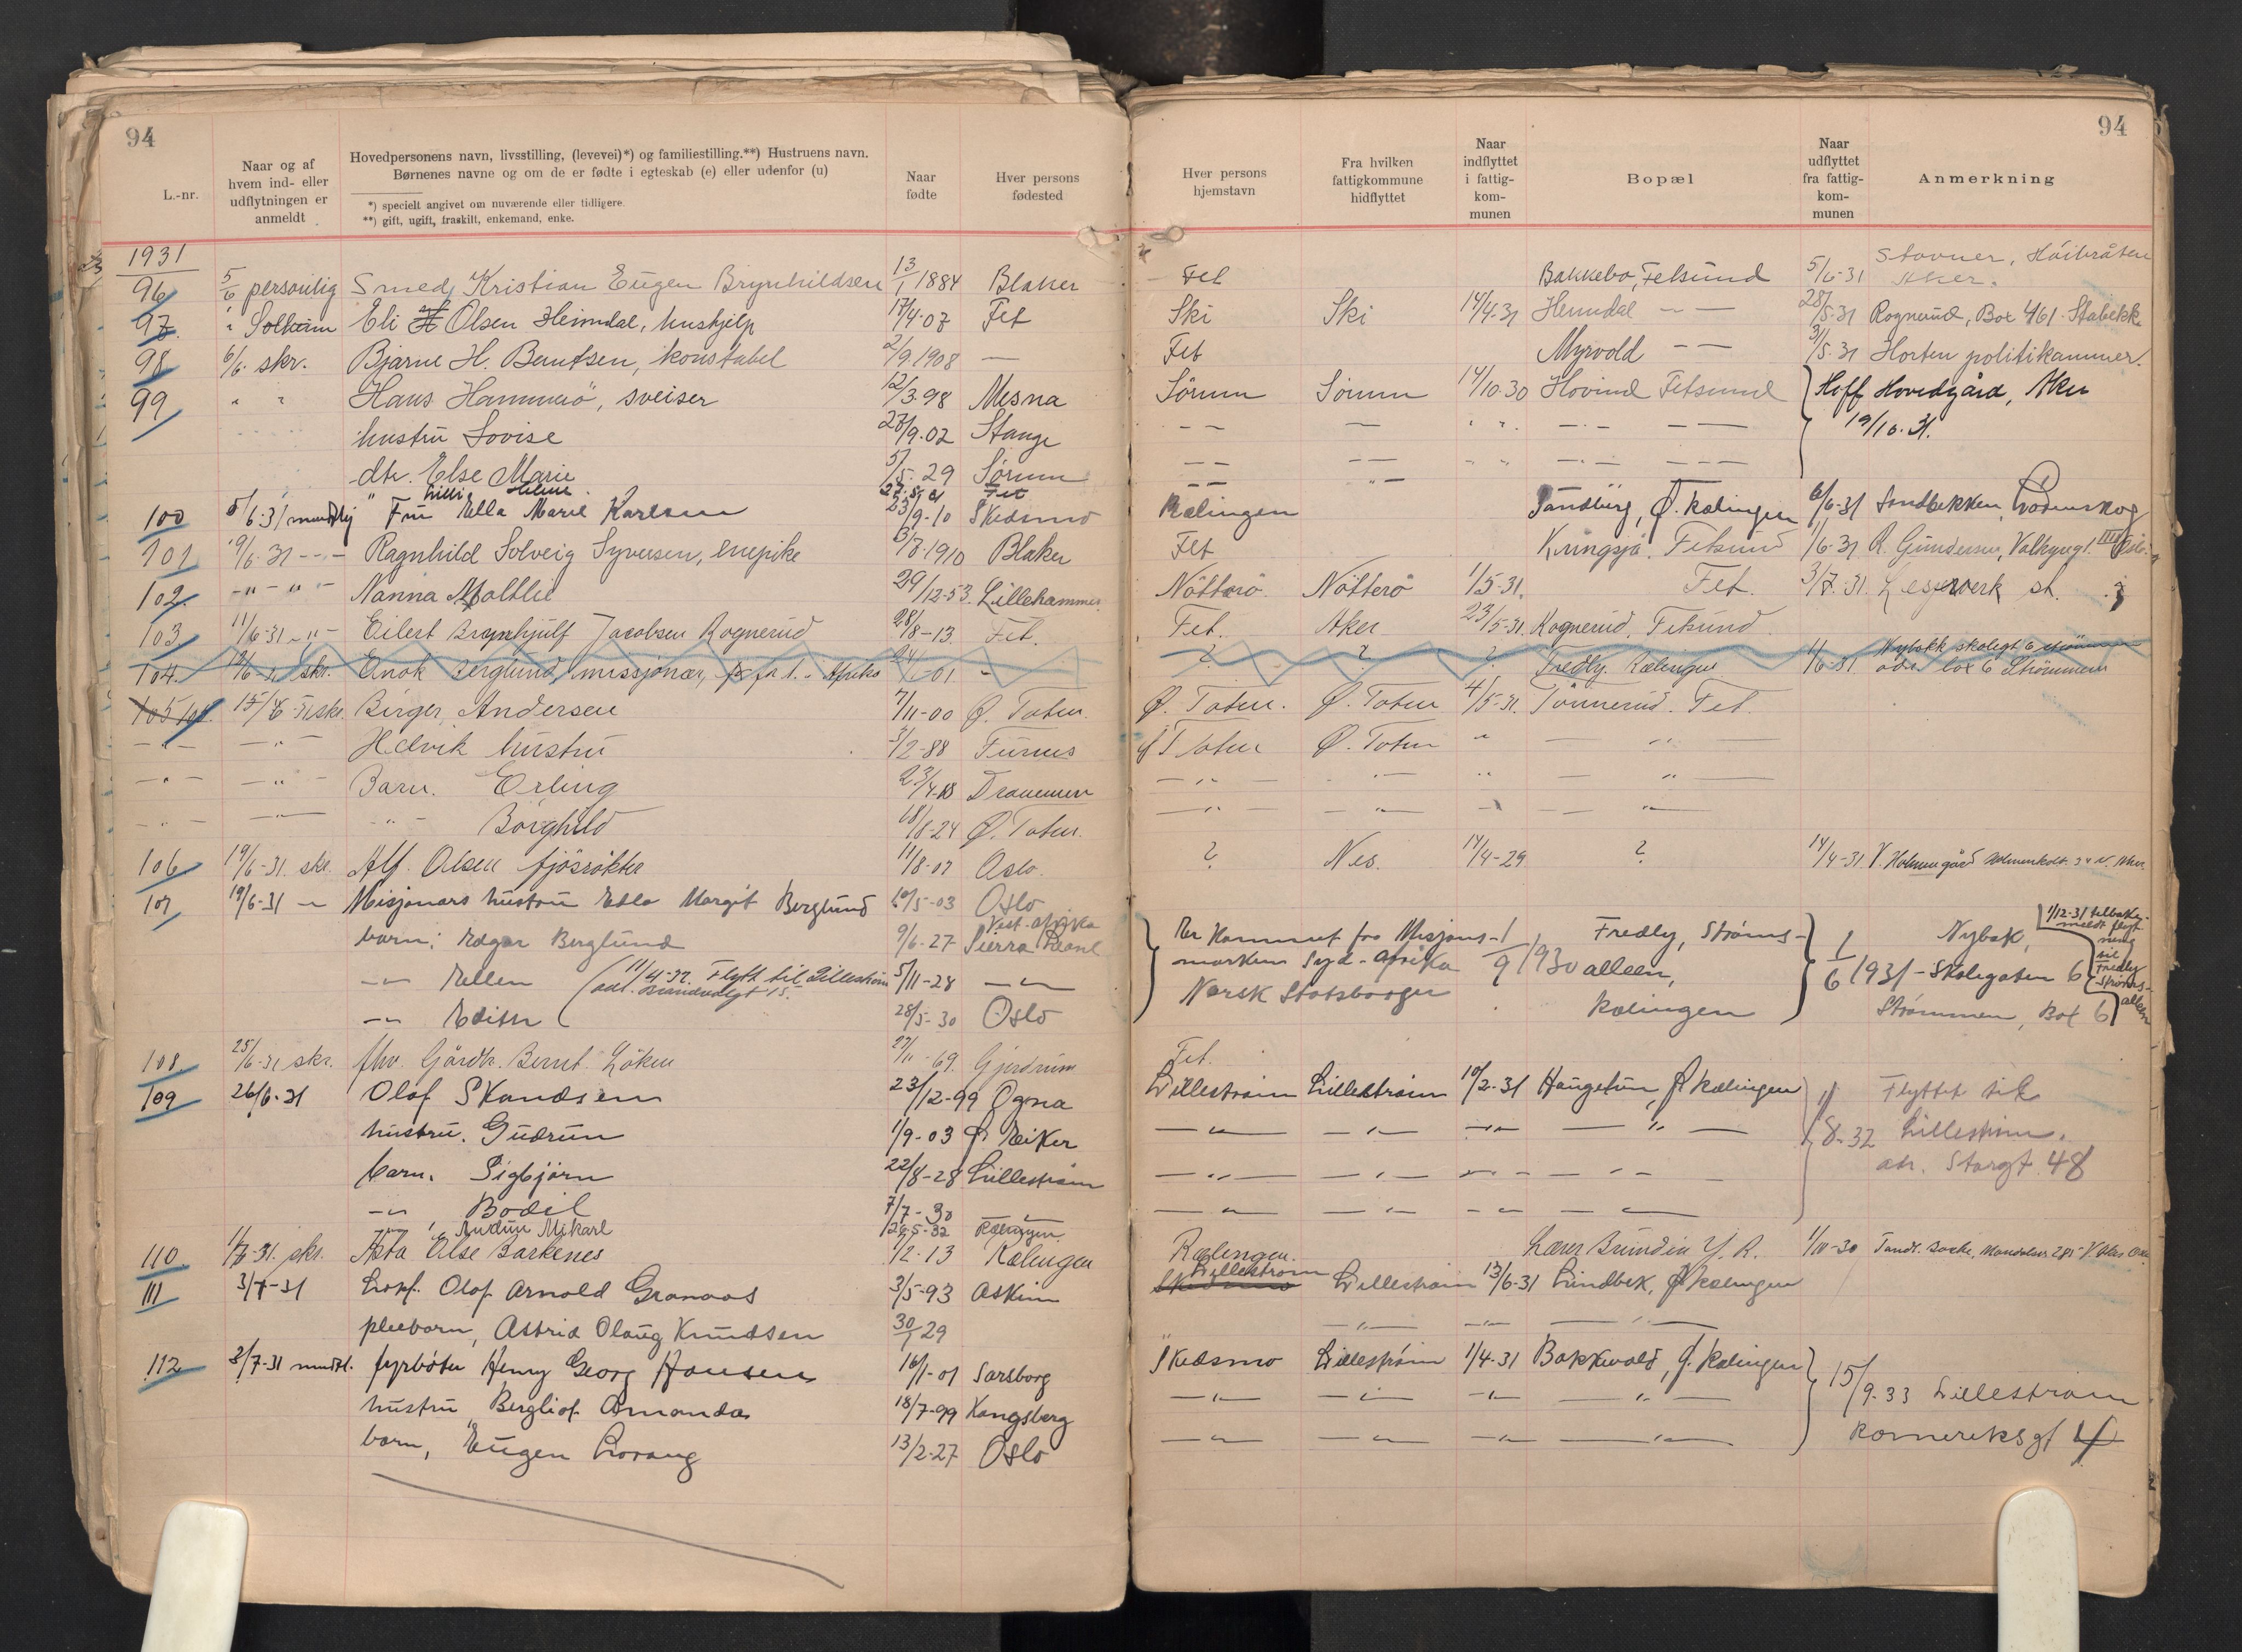 94
L.-nr.
Naar og af hvem ind- eller udflytningen er anmeldt
Hovedpersonens navn, livsstilling, (levevei)*) og familiestilling.**) Hustruens navn.
Børnenes navne og om de er fødte i egteskab (e) eller udenfor (u)
*) specielt angivet om nuværende eller tidligere.
**) gift, ugift, fraskilt, enkemand, enke.
Naar fødte
Hver persons fødested
1931
96 5/6 personlig Smed, Kristian Eugen Brynhildsen 13/1 1884 Blaker
97. " Solheim Eli Olsen Heimdal, hushjelp 17/4-07 Fet
98 6/6. skr. Bjarne H. Berntsen, konstabel 2/9 1908 —
99 " " Hans Hammerö, sveiser 12/3-98 Mesna
hustru Lovise 27/9-02 Stange
dtr. Else Marie 5/5-29 Sörum
Lilli Helene 27.5.31 Fet
100 5/6-31 mundtlig Fru Ella Marie Karlsen 23/9-10 Skedsmo
101 9/6-31 -"- Ragnhild Solveig Syversen, enepike 3/8-1910 Blaker
102. -"- "- Nanna Malthe 29/12-53. Lillehammer
103 11/6-31 -"- Eilert Brynhjulf Jacobsen Rognerud 28/8-13 Fet.
104. 12/6-" skr. Enok Berglund, missjonær, f. A. - Afrika -01 -
105 104. 15/6-31 skr. Birger Andersen 7/11-00 Ø. Toten.
-"- -"- Helvik hustru 3/2-88 Furnes
-"- -"- Barn. Erling 23/4-18 Drammen
-"- -"- -"- Borghild 18/8-24 Ø. Toten.
106 19/6-31. skr. Alf. Olsen fjösrökter 11/8-07 Oslo.
107 19/6-31 -"- Misjonærs hustru Edla Margit Berglund 10/5-03 Oslo
Vest-afrika
barn: Edgar Berglund 9/6-27 Sierra Leone
-"- Ellen (11/4-32. Flytt til Lilleström 5/11-28 -"-
adr. Brandvalgt 15.
-"- Edith 28/5-30 Oslo
108. 25/6-31 skr. fhv. Gårdbr. Bernt Löken 27/11-69. Gjerdrum
109 26/6-31 Olaf Skandsen 23/12-99 Ogna
hustru. Gudrun 1/9-03 Ø. Eiker
barn. Sigbjörn 22/8-28 Lilleström
-"- Bodil 7/7-30 -"-
-"- Audun Mikael 29/5-32 Rælingen.
110. 1/7-31. skr. Asta Else Barkenes 1/2-13 Rælingen
111 3/7-31 Lokf. Olaf Arnold Granaas 3/5-93 Askim
pleiebarn, Astrid Olaug Knudsen 30/1 29
112 3/7-31 mundtl. fyrböter Henry Georg Hansen 16/1-01 Sarsborg
hustru Bergliot Amanda 18/7-99 Kongsberg
barn, Eugen Lorang 13/2-27 Oslo
94
Hver persons hjemstavn
Fra hvilken fattigkommune hidflyttet
Naar indflyttet i fattig-kom-munen
Bopæl
Naar udflyttet fra fattig-kom-munen
Anmerkning
Fet Bakkebo, Fetsund 5/6-31 Stovner, Höibråten Aker.
Ski Ski 14/4-31 Heimdal — — 28/5-31 Rognerud, Box 461. Stabekk
Fet Myrvold — — 31/5-31 Horten politikammer.
Sörum Sörum 14/10-30 Hovind Fetsund } Hoff Hovedgård, Aker
19/10-31.
Rælingen Sandberg, Ø. Rælingen 6/6-31 Sandbekken, Lörenskog
Fet Kringsjå. Fetsund 1/6-31 R. Gundersen, Valkyrgt. III Oslo.
Nötterö. Nötterö 1/5-31. Fet. 3/7-31. Lesjaverk st.
Fet. Aker 23/5-31. Rognerud, Fetsund
? ? ? Fredly. Rælingen 1/6-31 Nybakk skolegt 6 Strömmen
adr. box 6 Strömmen
Ø. Toten. Ø. Toten 4/5-31. Tonnerud. Fet.
Ø Toten Ø. Toten " — " —
— " — — " — " — " —
— " — — " — " — " —
? Nes. 14/4-29 ? 14/4-31 V. Holmengård Holmenkolt. V. Aker.
Er kommet fra Misjons-marken Syd-Afrika 1/9 1930 Fredly, Ströms-alleen, Rælingen } 1/6 1931 - Nybak, Skolegaten 6 Strömmen, Box 6
Norsk Statsborger
1/12-31 tilbake-meldt flytning til Fredly Ströms-alleen
Fet.
Lilleström Lilleström 10/2-31 Haugetun, Ø Rælingen 1/8-32 Flyttet til
Lilleström.
adr. Storgt. 48
Rælingen. Lærer Brundin Y. R. 1/10-30
Lilleström
Skedsmo Lilleström 13/6-31 Lundbek, Ø Rælingen
— " — — " — — " —
Skedsmo Lilleström 1/4-31 Bakkevold, Ø. Rælingen } 15/9-33 Lilleström
Romeriksgt 4
— " — — " — — " — — " —
— " — — " — — " — — " —